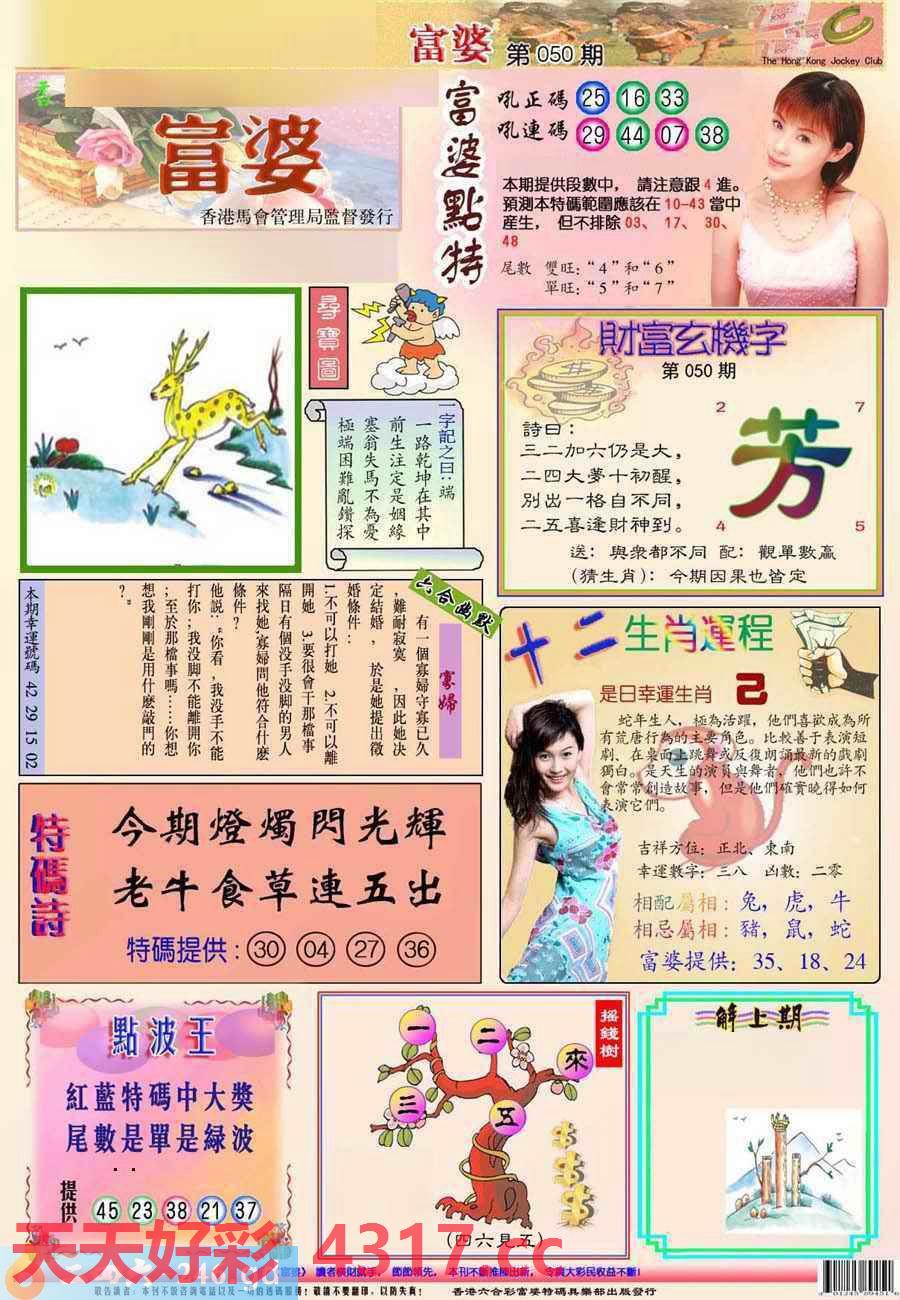 富婆 第 050 期
The Hong Kong Jockey Club
富婆
香港馬會管理局監督發行
富婆點特
吼正碼 25 16 33
吼連碼 29 44 07 38
本期提供段數中， 請注意跟 4 進。
預測本特碼範圍應該在 10-43 當中
産生， 但不排除 03、 17、 30、
48
尾數 雙旺：“4”和“6”
單旺：“5”和“7”
尋寶圖
一字記之曰：端
一路乾坤在其中
前生注定是姻緣
塞翁失馬不為憂
極端困難亂鑽探
財富玄機字
第 050 期
2 7
詩曰：
三二加六仍是大，
二四大夢十初醒，
別出一格自不同，
二五喜逢財神到。
芳
4 5
送： 與衆都不同 配： 觀單數贏
(猜生肖)： 今期因果也皆定
六合幽默
寡婦
有一個寡婦守寡已久
，難耐寂寞 ，因此她决
定結婚， 於是她提出徵
婚條件：
1.不可以打她 2.不可以離
開她 3.要很會干那檔事
隔日有個没手没脚的男人
來找她.寡婦問他符合什麽
條件?
他説：“你看，我没手不能
打你;我没脚不能離開你
;至於那檔事嗎……你想
想我剛剛是用什麽敲門的
?”
本期幸運號碼 42 29 15 02
十二生肖運程
是日幸運生肖 己
蛇年生人，極為活躍，他們喜歡成為所
有荒唐行為的主要角色。比較善于表演短
劇、在桌面上跳舞或反復朗誦最新的戲劇
獨白。是天生的演員與舞者，他們也許不
會常常創造故事，但是他們確實曉得如何
表演它們。
吉祥方位：正北、東南
幸運數字：三八 凶數：二零
相配屬相：兔，虎，牛
相忌屬相：豬，鼠，蛇
富婆提供：35、18、24
特碼詩
今期燈燭閃光輝
老牛食草連五出
特碼提供：30 04 27 36
點波王
紅藍特碼中大獎
尾數是單是緑波
提供 45 23 38 21 37
搖錢樹
一 二 來
三 五
(四六見五)
解上期
天天好彩 4317.cc
《富婆》 讀者橫財就手， 節節領先， 本刊不斷推陳出新， 令廣大彩民收益不斷!
敬請不要翻印，以防失真!
香港六合彩富婆特碼具樂部出版發行